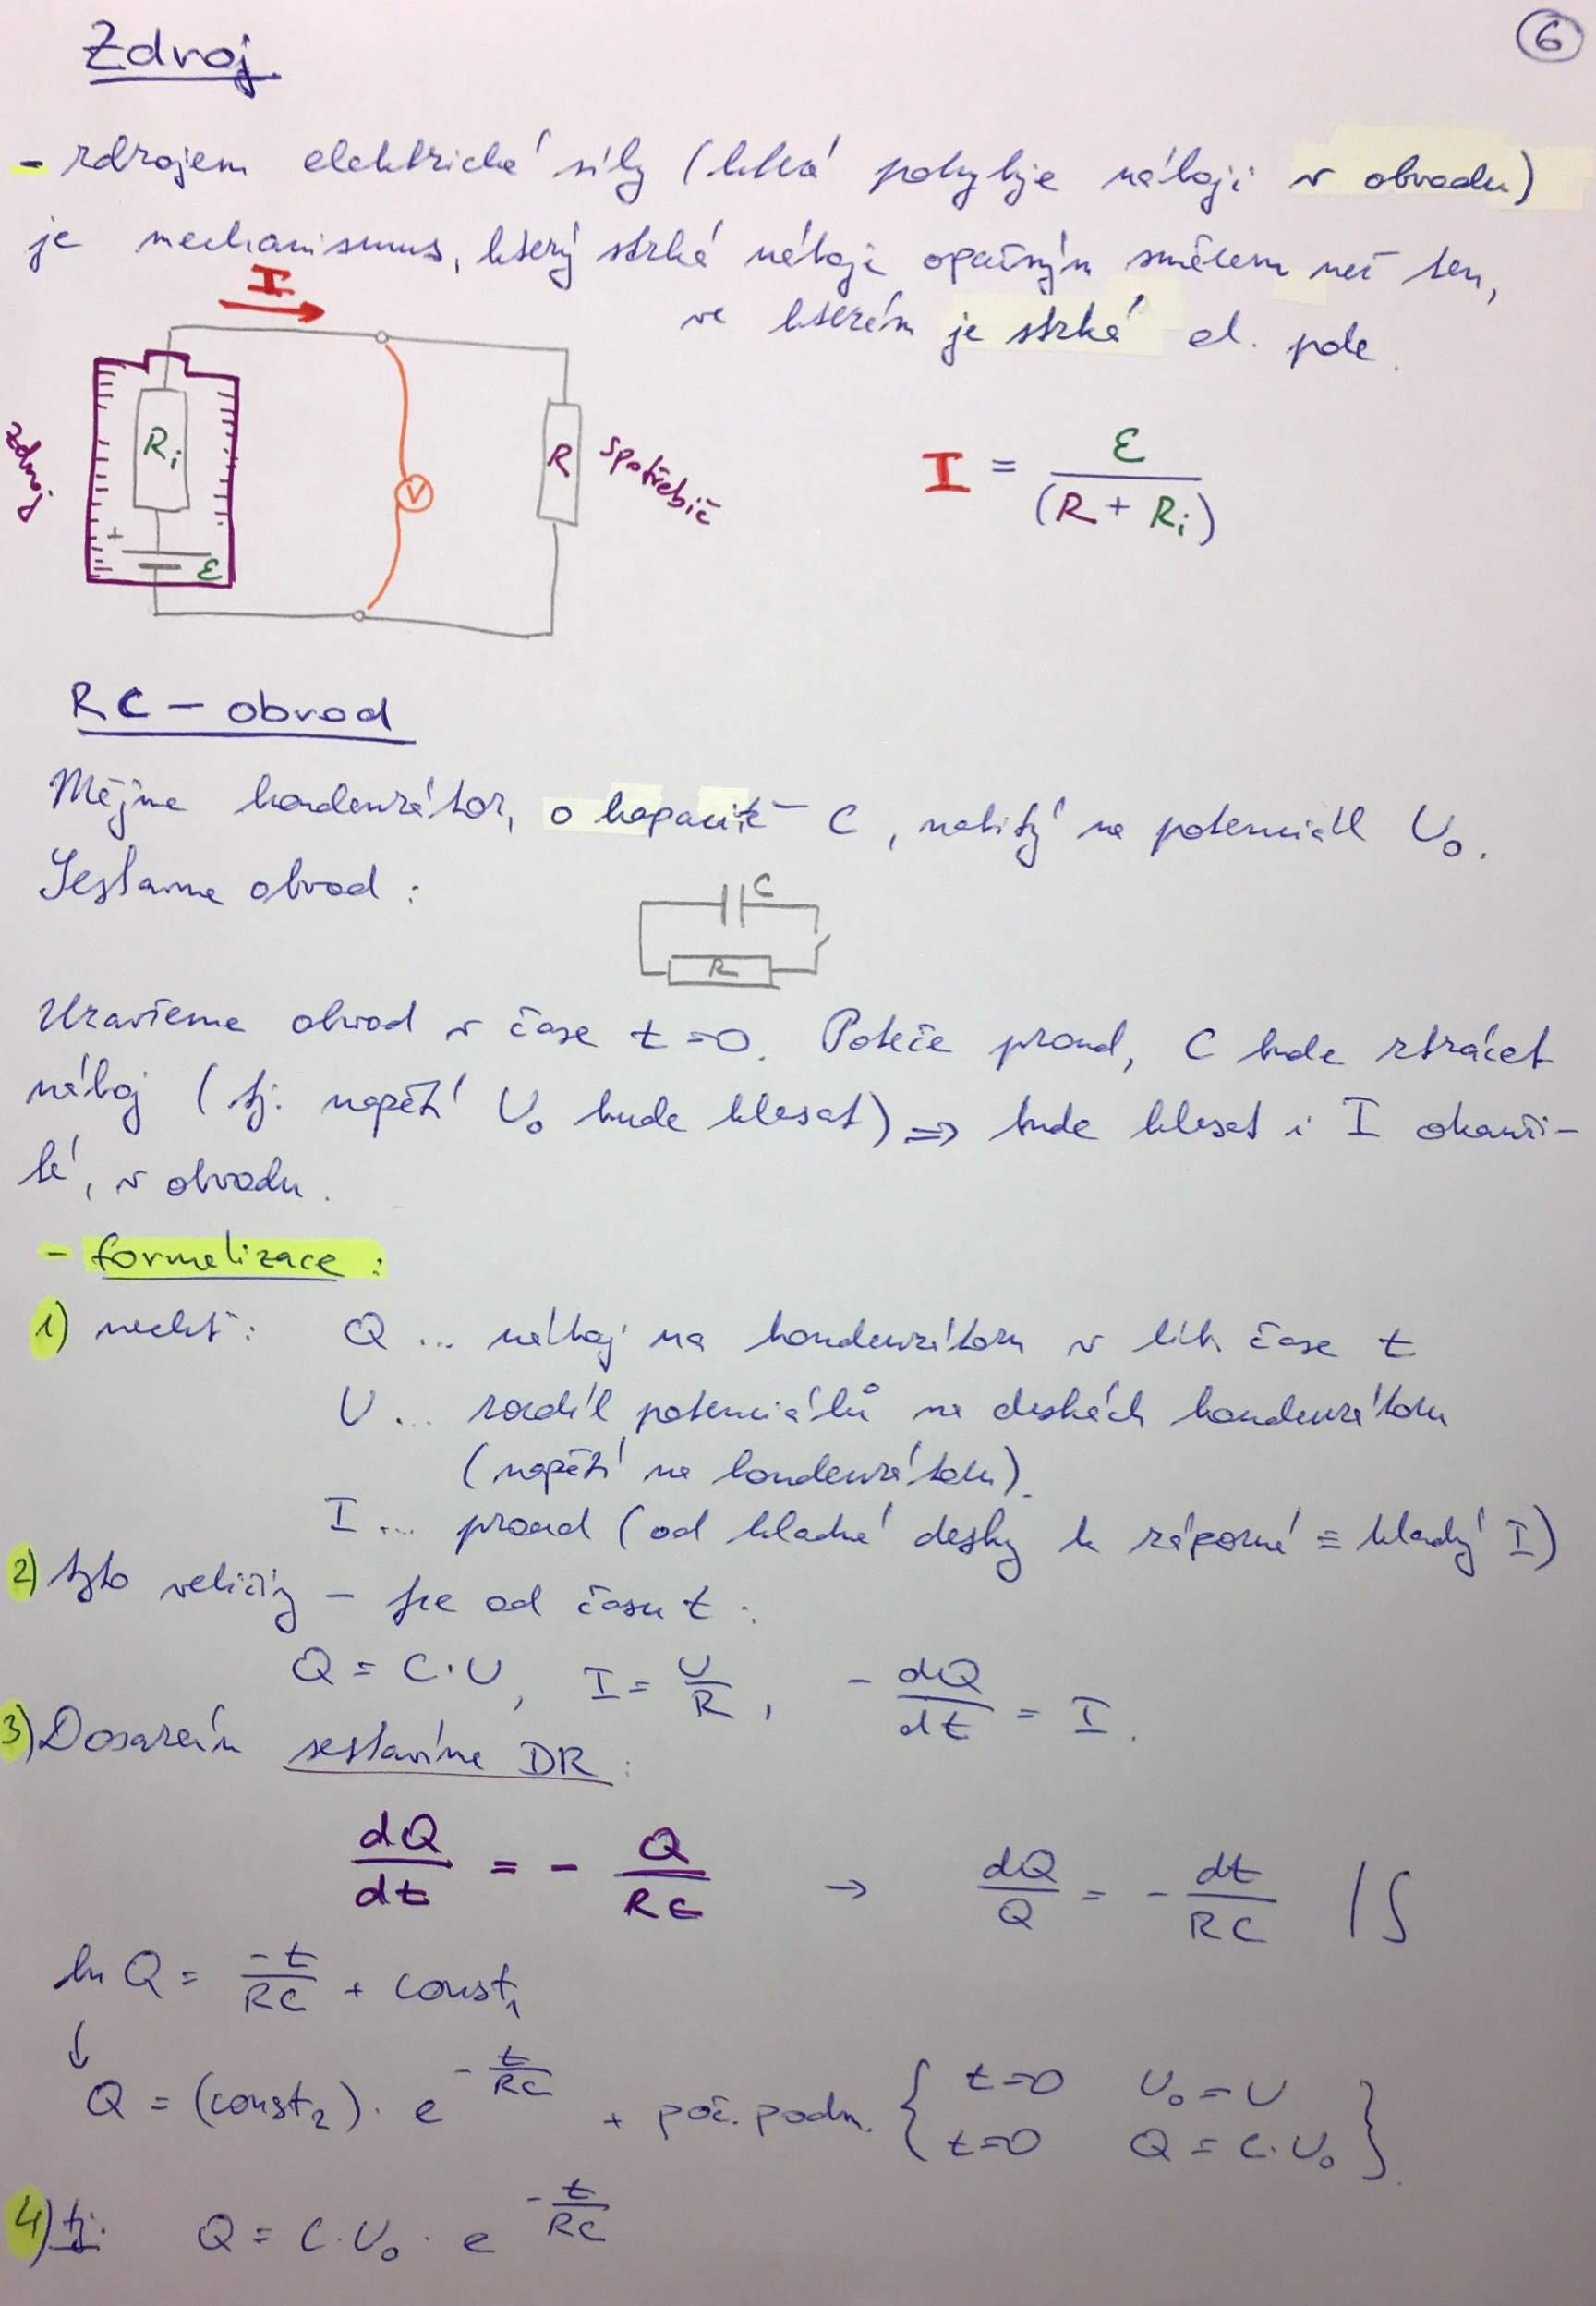 Zdroj
6
- zdrojem elektrické síly (která pohybuje náboji v obvodu)
je mechanismus, který strká náboje opačným směrem než ten,
ve kterém je strká el. pole.
I
zdroj
Ri
+
ε
V
R
spotřebič
I = ε / (R + Ri)
RC - obvod
Mějme kondenzátor, o kapacitě C, nabitý na potenciál U₀.
Sestavme obvod :
C
R
Uzavřeme obvod v čase t=0. Poteče proud, C bude ztrácet
náboj (tj. napětí U₀ bude klesat) ⇒ bude klesat i I okamži-
tě, v obvodu.
- formalizace :
1) nechť: Q ... náboj na kondenzátoru v lib. čase t
U ... rozdíl potenciálů na deskách kondenzátoru
(napětí na kondenzátoru).
I ... proud (od kladné desky k záporné ≡ kladný I)
2) tyto veličiny - fce od času t :
Q = C·U, I = U/R, - dQ/dt = I.
3) Dosazením sestavíme DR :
dQ/dt = - Q/RC → dQ/Q = - dt/RC /∫
ln Q = -t/RC + const₁
↓
Q = (const₂) · e^(-t/RC) + poč. podm. { t=0 U₀=U
t=0 Q = C·U₀ }.
4) tj. Q = C·U₀ · e^(-t/RC)